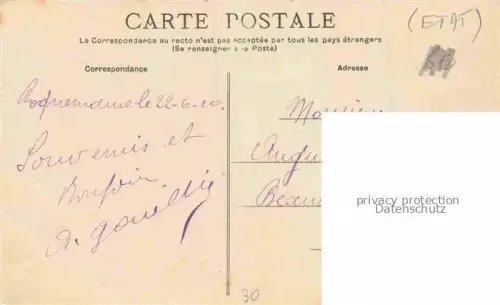 CARTE POSTALE
(ETAT)
La Correspondance au recto n'est pas acceptée par tous les pays étrangers
(Se renseigner à la Poste)
Correspondance
Adresse
Roquemaure le 22-6-10.
Souvenirs et
Bonjour
Monsieur
privacy protection
Datenschutz
30